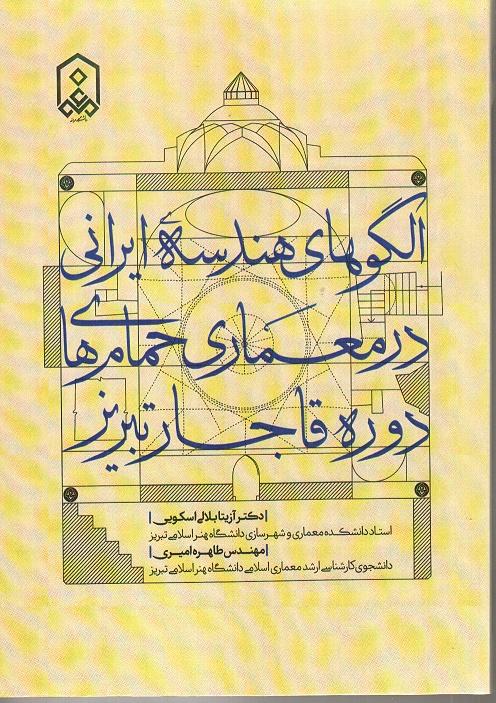 الگوهای هندسهٔ ایرانی
در معماری حمام‌های
دوره قاجار تبریز
|دکتر آزیتا بلالی اسکویی|
استاد دانشکده معماری و شهرسازی دانشگاه هنر اسلامی تبریز
|مهندس طاهره امیری|
دانشجوی کارشناسی ارشد معماری اسلامی دانشگاه هنر اسلامی تبریز